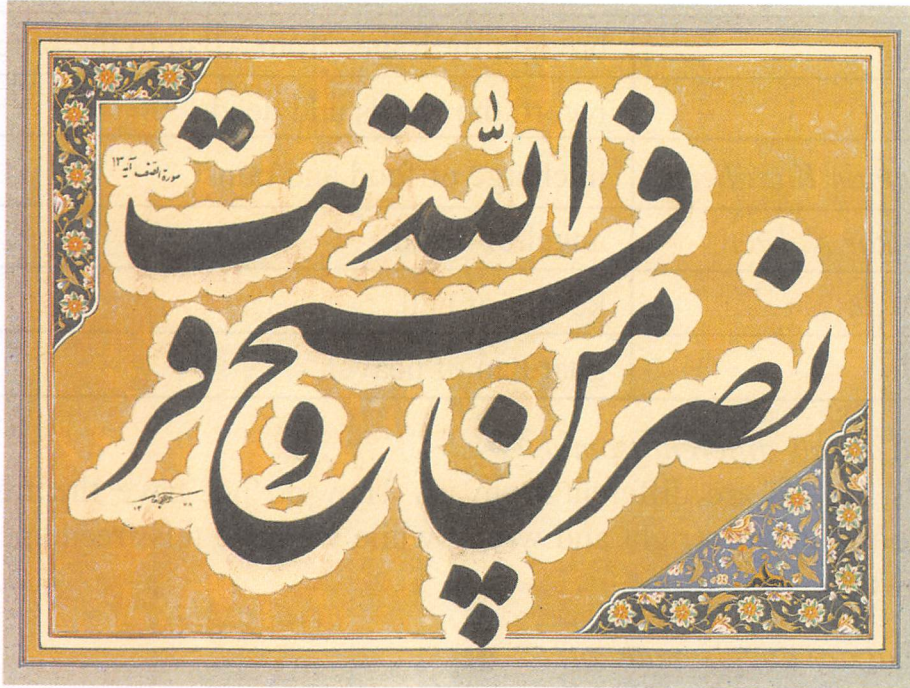 نصر من الله و فتح قریب
سورة الصف آیه ۱۳